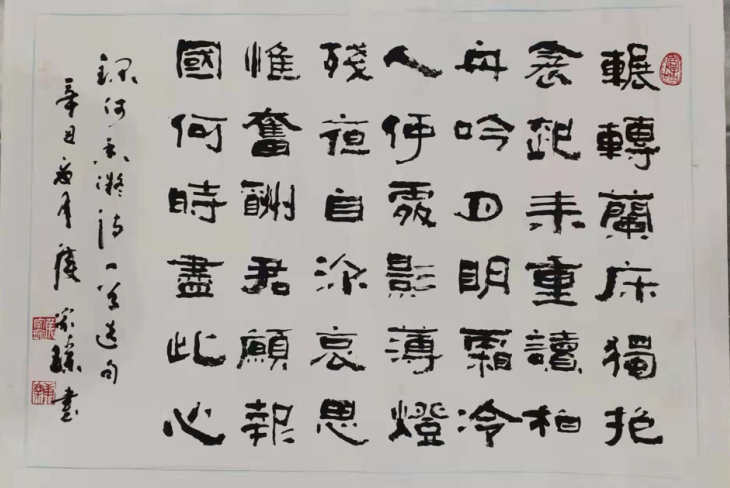 輾轉蘭床獨抱
衾起來重讀柏
舟吟月明霜冷
人何處影薄燈
殘夜自深哀思
惟奮酬君願報
國何時盡此心
錄何香凝詩一首選句
辛丑夏月書